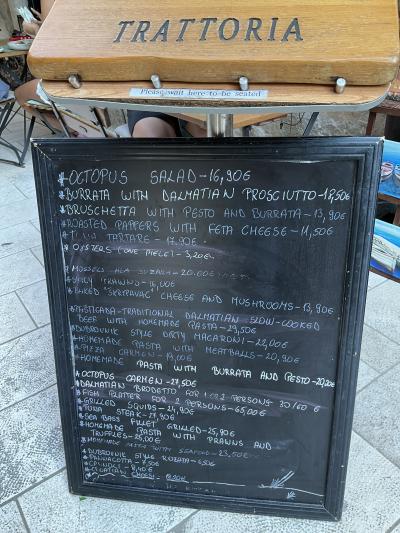 TRATTORIA
Please wait here to be seated
*OCTOPUS SALAD-16,90€
*BURRATA WITH DALMATIAN PROSCIUTTO-18,50€
*BRUSCHETTA WITH PESTO AND BURRATA-13,90€
*ROASTED PAPPERS WITH FETA CHEESE-11,50€
TARTARE-17,90€
* OYSTERS (ONE PIECE)-3,20€
* MUSSELS ALA BUZARA-20.00€
*SPICY PRAWNS-16,00€
*BAKED "SKRIPAVAC" CHEESE AND MUSHROOMS-13,90€
*PASTICADA-TRADITIONAL DALMATIAN SLOW-COOKED
BEEF WITH HOMEMADE PASTA-29,50€
*DUBROVNIK STYLE DIRTY MACARONI-22,00€
*HOMEMADE PASTA WITH MEATBALLS-20,90€
*PIZZA CARMEN-19,00€
*HOMEMADE PASTA WITH BURRATA AND PESTO-20,20€
*OCTOPUS CARMEN-27,50€
*DALMATIAN BRODETTO FOR 1 OR 2 PERSONS 30/60 €
*FISH PLATTER FOR 2 PERSONS-65,00€
*GRILLED SQUIDS-24,90€
*TUNA STEAK-27,90€
*SEA BASS FILLET GRILLED-25,90€
*HOMEMADE PASTA WITH PRAWNS AND
TRUFFLES-26,00€
*HOMEMADE WITH SEAFOOD-23,50€
*DUBROVNIK STYLE ROZATA-6,50€
*PANNACOTTA-7,50€
*CROATIAN CHEESE